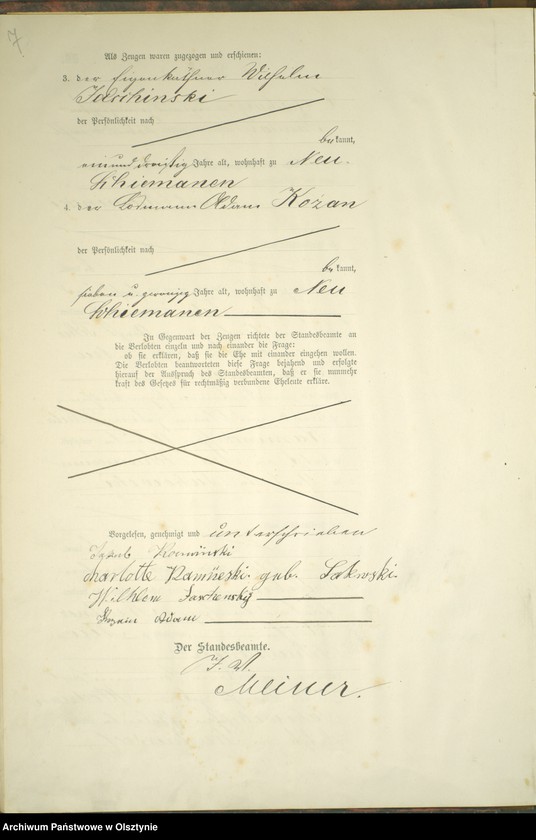 7
Als Zeugen waren zugezogen und erschienen:
3. der Eigenkäthner Wilhelm
der Persönlichkeit nach
bekannt,
einunddreißig Jahre alt, wohnhaft zu Neu
Schiemanen
4. der Losmann Adam Kozan
der Persönlichkeit nach
bekannt,
sieben u. zwanzig Jahre alt, wohnhaft zu Neu
Schiemanen
In Gegenwart der Zeugen richtete der Standesbeamte an
die Verlobten einzeln und nach einander die Frage:
ob sie erklären, daß sie die Ehe mit einander eingehen wollen.
Die Verlobten beantworteten diese Frage bejahend und erfolgte
hierauf der Ausspruch des Standesbeamten, daß er sie nunmehr
kraft des Gesetzes für rechtmäßig verbundene Eheleute erkläre.
Vorgelesen, genehmigt und unterschrieben
Jacob
Charlotte geb.
Wilhlem
Adam
Der Standesbeamte.
J. V.
Meiner.
Archiwum Państwowe w Olsztynie